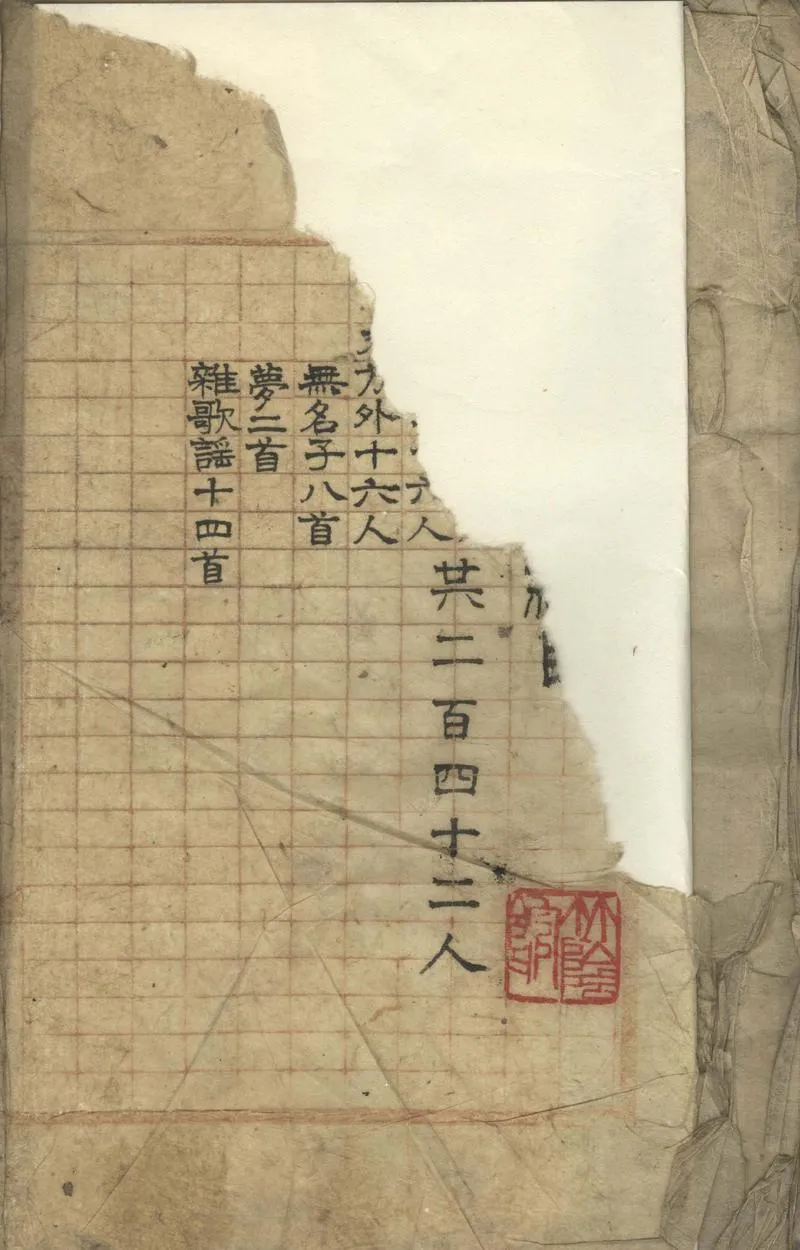 共二百四十二人
人
方外十六人
無名子八首
夢二首
雜歌謠十四首